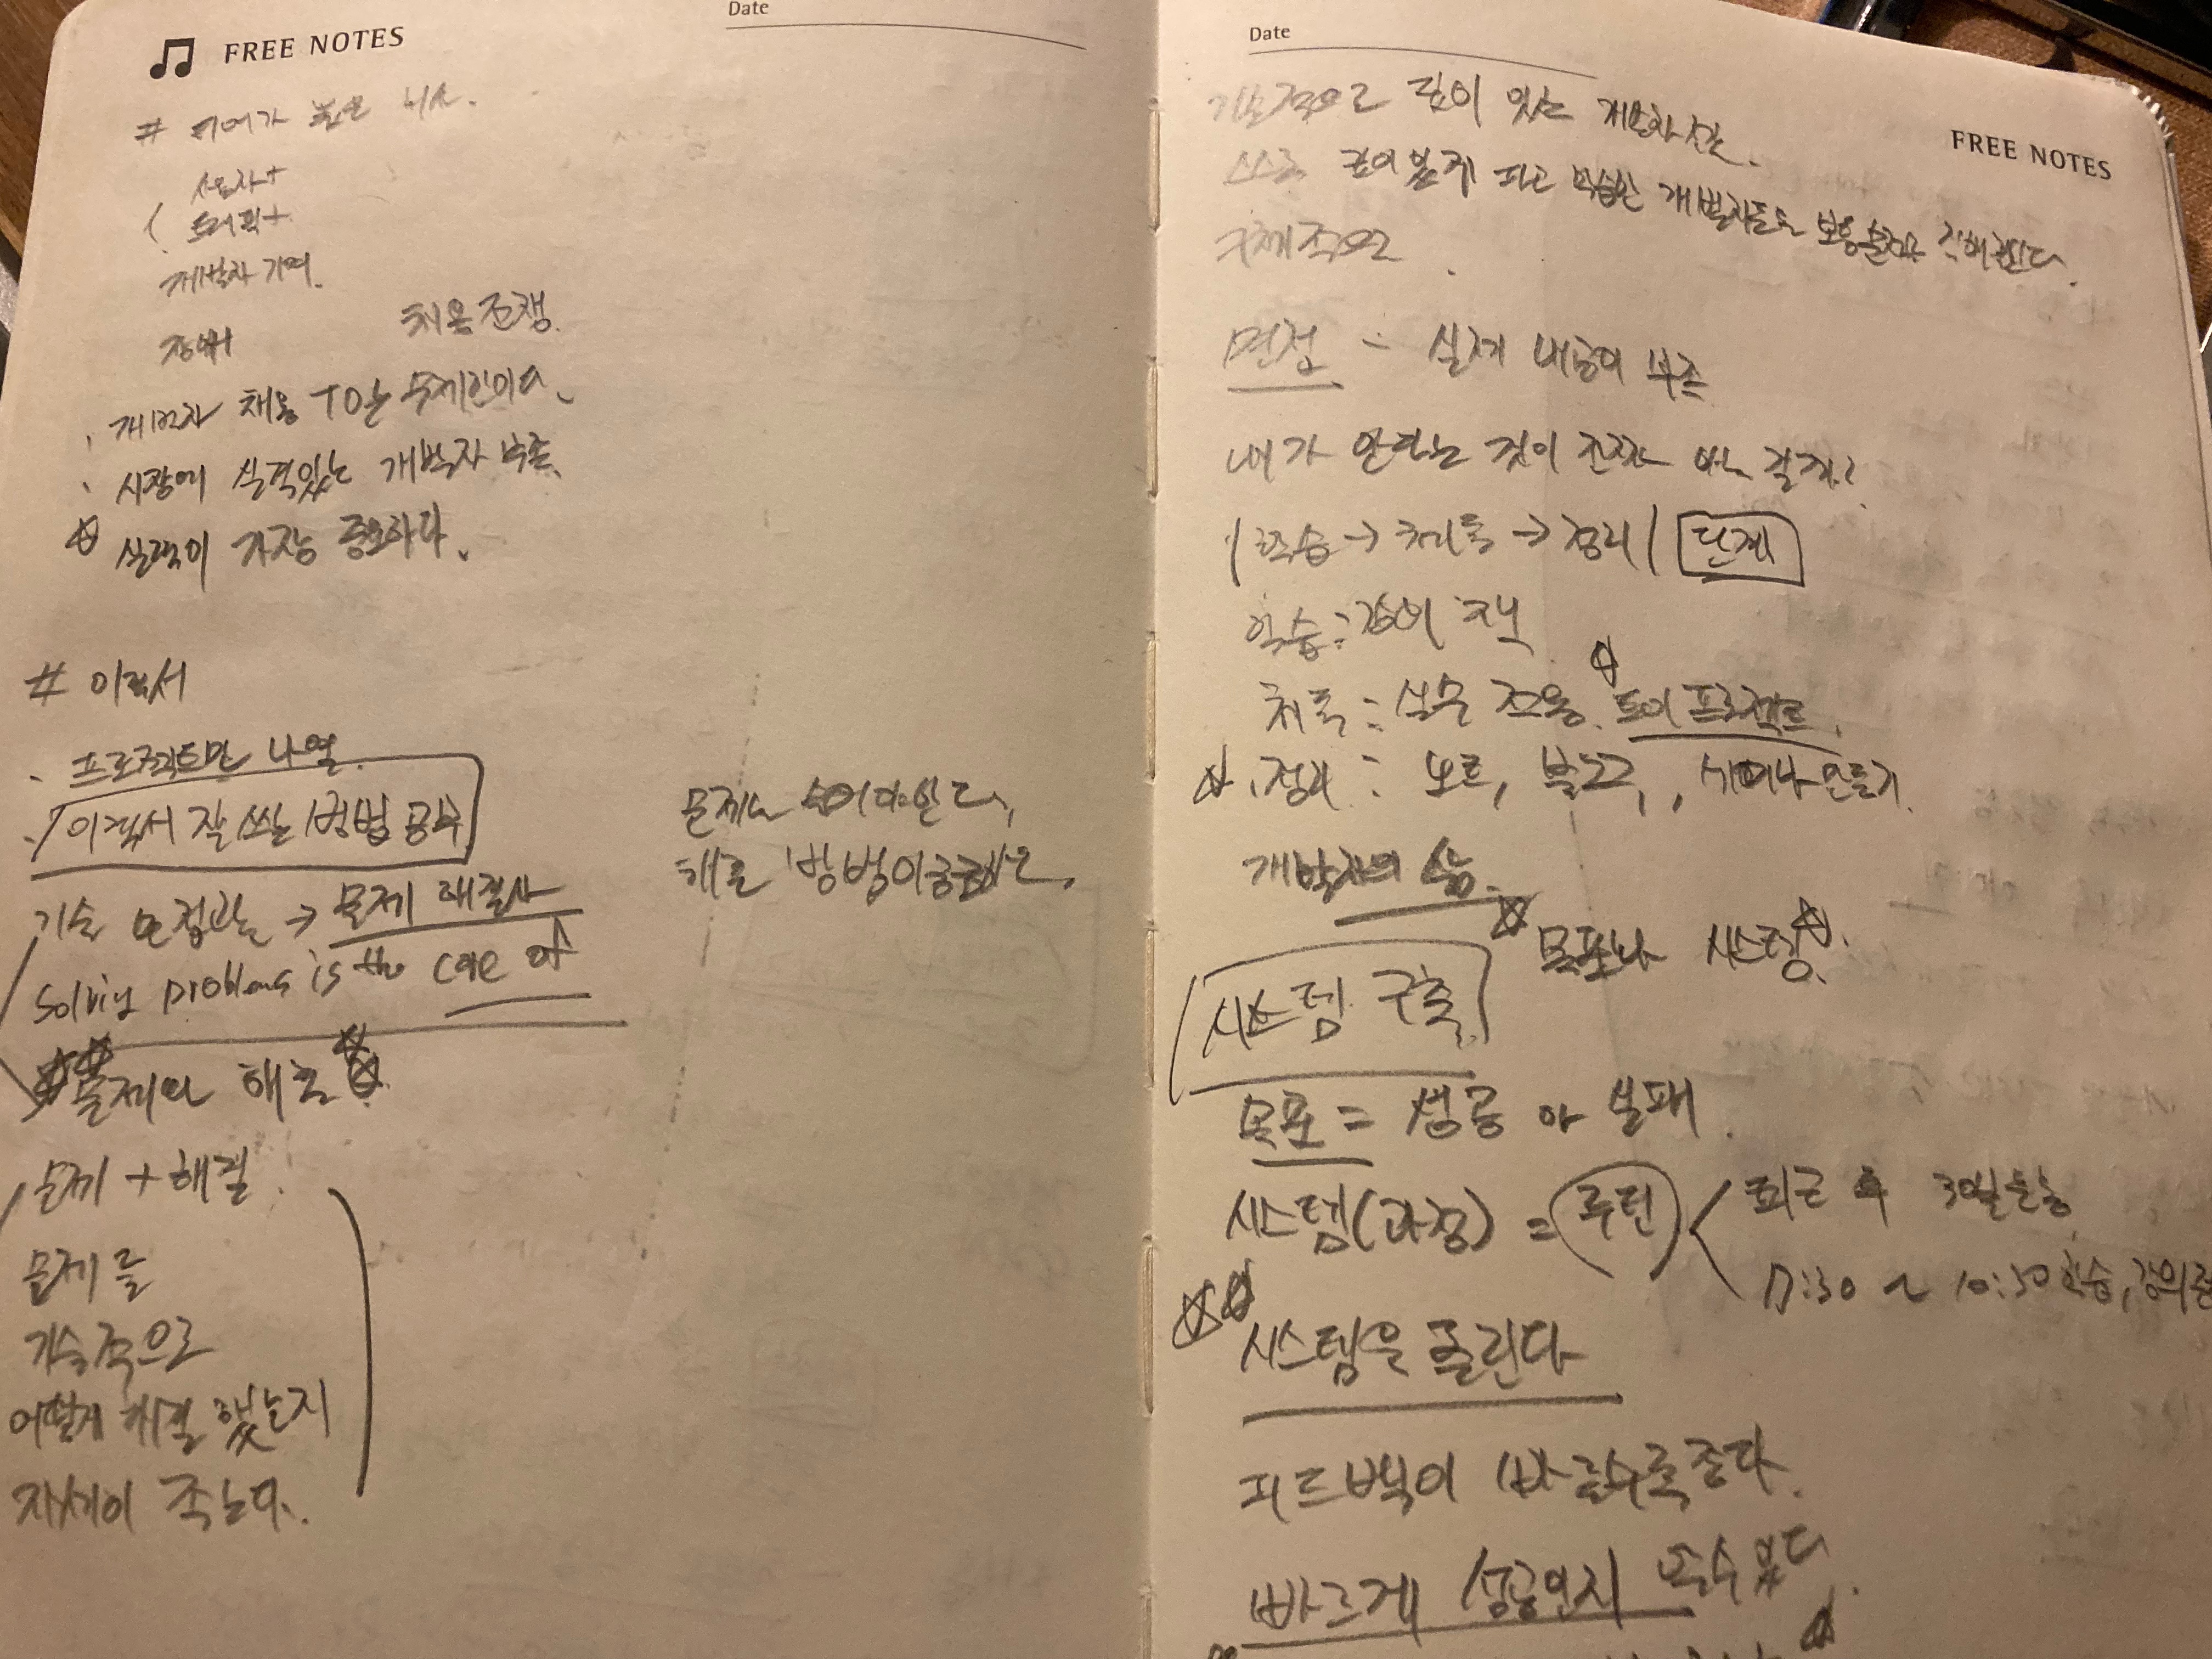 FREE NOTES
Date
사용자+
트래픽+
개발자 기여.
장애
처우 전쟁.
개발자 채용 TO는 무제한이다.
시장에 실력있는 개발자 부족.
실력이 가장 중요하다.
# 이력서
프로젝트만 나열.
이력서 잘 쓰는 방법 공부
기술 면접관 → 문제 해결사
Solving problems is the core of
문제와 해결
문제 + 해결
문제를
기술적으로
어떻게 해결 했는지
자세히 적는다.
문제는
방법이 궁금
Date
FREE NOTES
기술적으로 깊이 있는 개발자
스스로 깊이있게 파고 학습한 개발자들도
구체적으로
면접 - 실제 내공이 부족
내가 안다는 것이 진짜 아는 걸까?
학습 → 체득 → 정리 단계
학습 : 강의 책
체득 : 실무 적용. 토이 프로젝트.
정리 : 노트, 블로그, 세미나 만들기.
개발자의 삶.
목표와 시스템.
시스템 구축
목표 = 성공 아 실패.
시스템(과정) = 루틴
퇴근 후 30분 운동
7:30 ~ 10:30 학습, 강의
시스템을 돌린다
피드백이 빠를수록 좋다.
빠르게 성공인지 알수 있다.